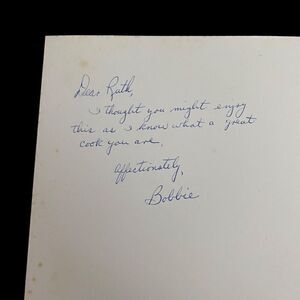 Dear Ruth,
I thought you might enjoy
this as I know what a great
cook you are.
Affectionately,
Bobbie